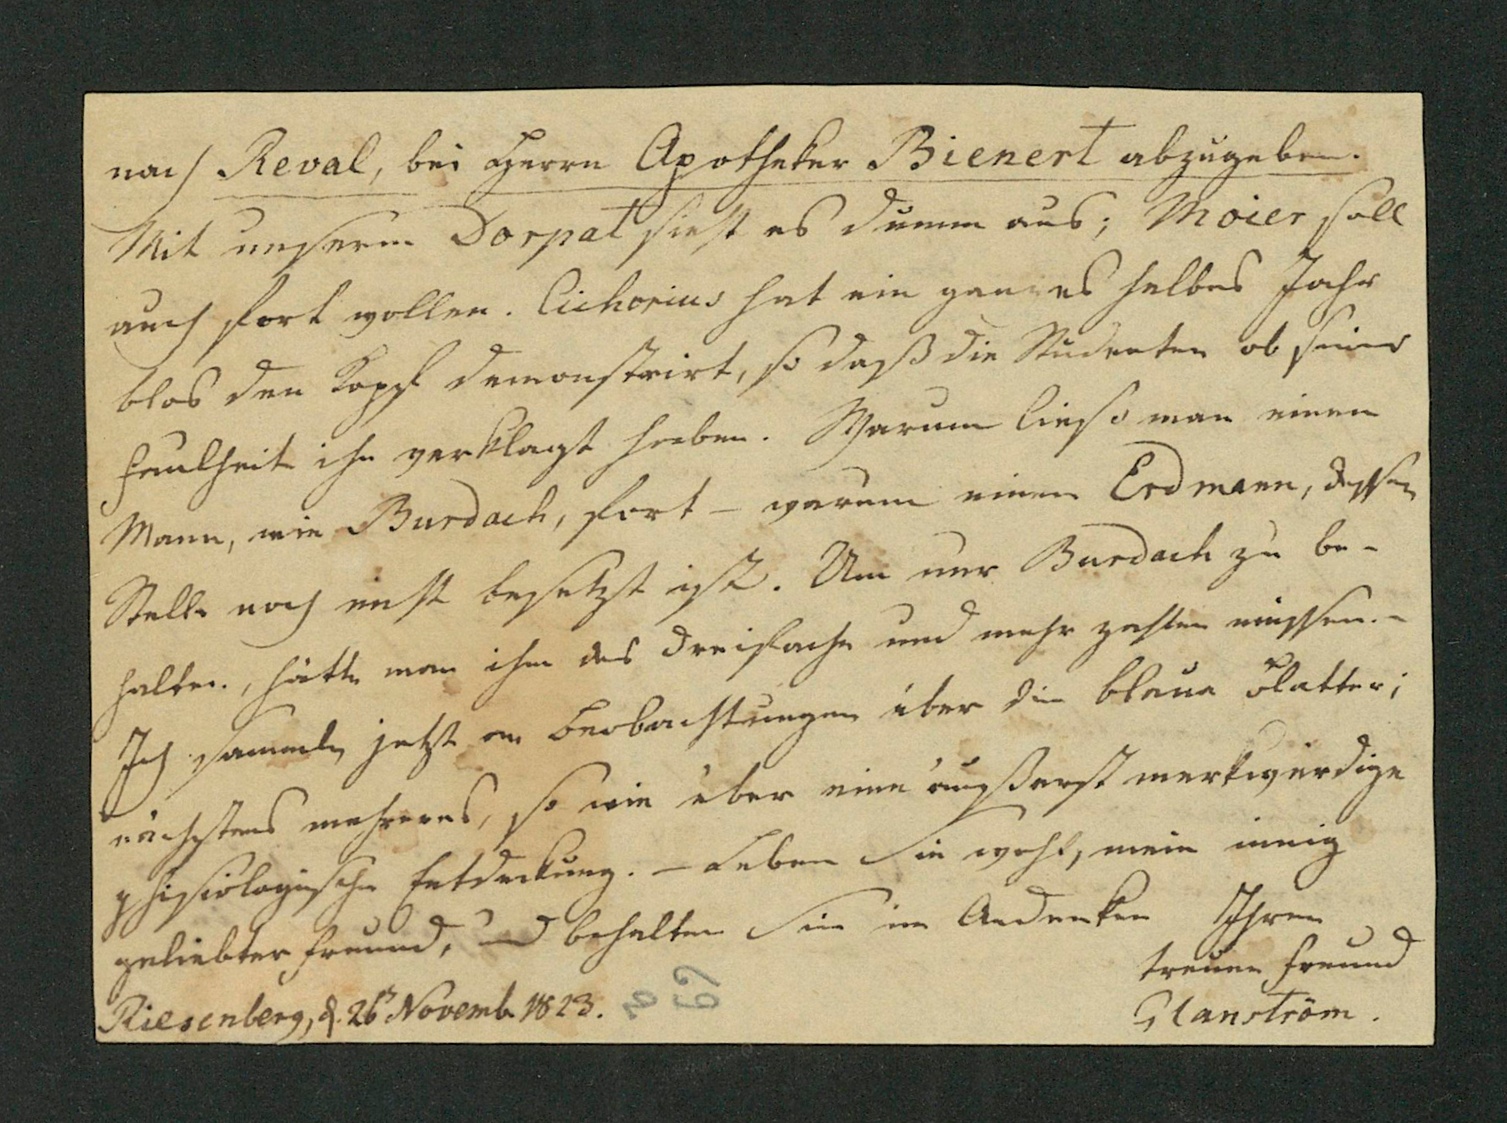 nach Reval, bei Herrn Apotheker Bienert abzugeben.
Mit unserm Dorpat sieht es dumm aus; Moier soll
auch fort wollen. Cichorius hat ein ganzes halbes Jahr
blos den Kopf demonstrirt, so daß die Studenten ob seiner
Faulheit ihn verklagt haben. Warum ließ man einen
Mann, wie Burdach, fort – warum einen Erdmann, dessen
Stelle noch nicht besetzt ist. Um nur Burdach zu be-
halten, hätte man ihm das dreifache und mehr zahlen müssen. –
Ich sammle jetzt an Beobachtungen über die blaue Blatter;
nächstens mehreres, so wie über eine äußerst merkwürdige
phisiologische Entdeckung. – Leben Sie wohl, mein innig
geliebter Freund, und behalten Sie im Andenken Ihren
treuen Freund
Riesenberg, d. 26 Novemb. 1823.
Glanström.
69